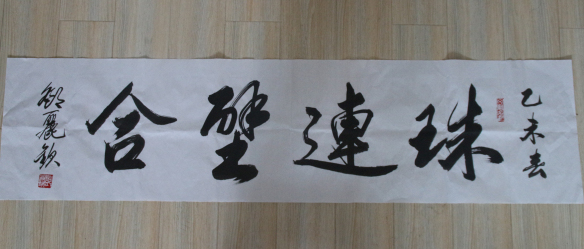 乙未春
珠連璧合
麗欽